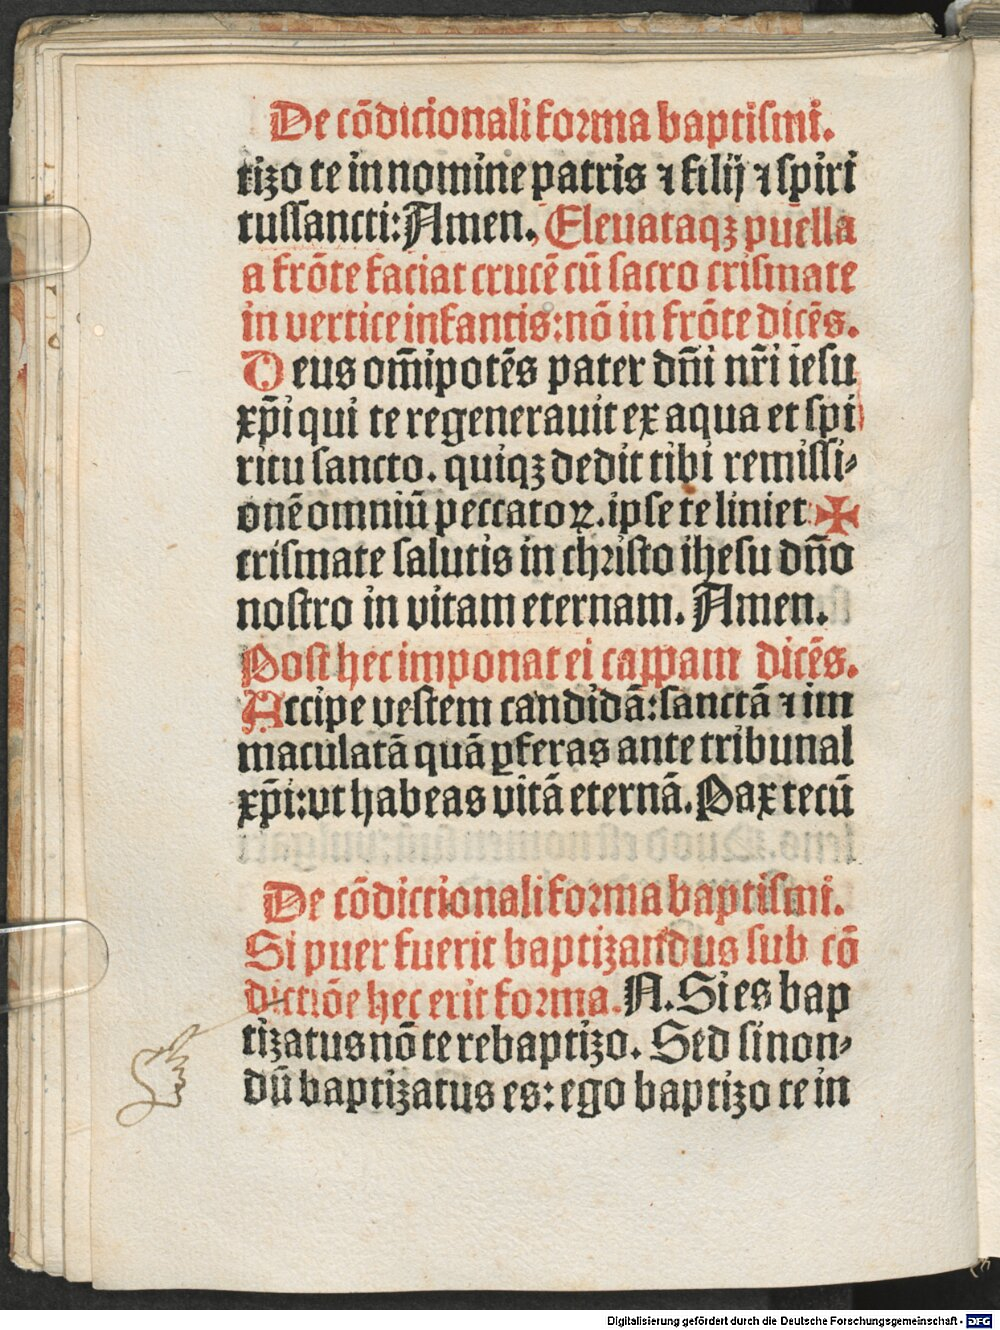 De cõdicionali forma baptismi.
tizo te in nomine patris ⁊ filij ⁊ spiri
tussancti: Amen. Eleuataqꝫ puella
a frõte faciat crucẽ cũ sacro crismate
in vertice infantis: nõ in frõte dicẽs.
Deus om̃ipotẽs pater dñi nr̃i iesu
xp̃i qui te regenerauit ex aqua et spi
ritu sancto. quiqꝫ dedit tibi remissi-
onẽ omniũ peccatoꝝ. ipse te liniet ✠
crismate salutis in christo ihesu dño
nostro in vitam eternam. Amen.
Post hec imponat ei cappam dicẽs.
Accipe vestem candidã: sanctã ⁊ im
maculatã quã ꝑferas ante tribunal
xp̃i: vt habeas vitã eternã. Pax tecũ
De cõdictionali forma baptismi.
Si puer fuerit baptizandus sub cõ
dictiõe hec erit forma. N. Si es bap
tizatus nõ te rebaptizo. Sed si non-
dũ baptizatus es: ego baptizo te in
Digitalisierung gefördert durch die Deutsche Forschungsgemeinschaft - DFG